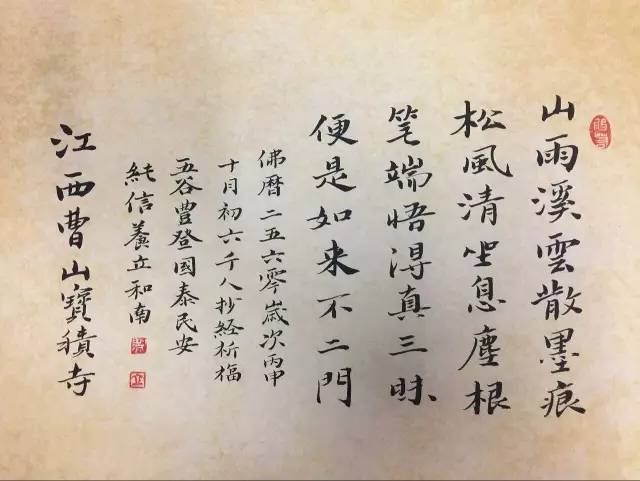 山雨溪雲散墨痕
松風清坐息塵根
笔端悟得真三昧
便是如来不二門
佛曆二五六零歲次丙申
十月初六千人抄经祈福
五谷豊登國泰民安
純信養立和南
江西曹山寶積寺